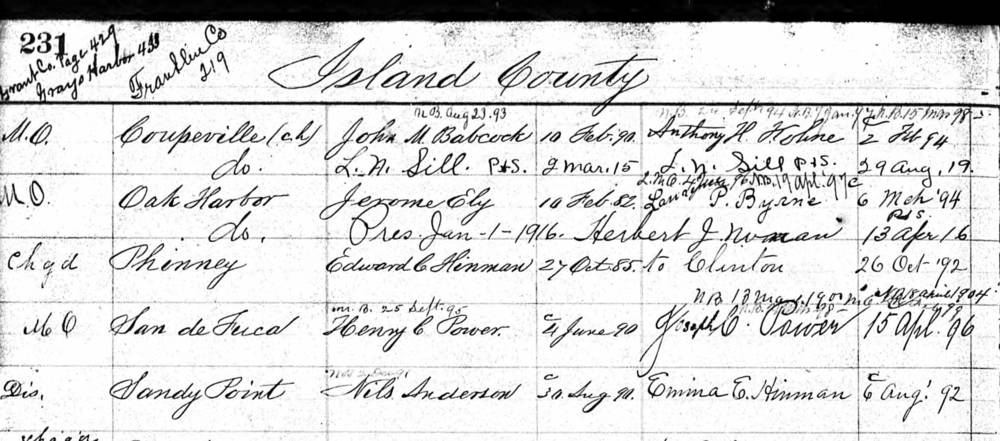 231
Grant Co. Page 429
Grays Harbor 433
Franklin Co
219
Island County
N.B. Aug 23.93
M.O. Coupeville (ch) John M. Babcock 10 Feb. 90. Anthony H. 2 Feb 94
do. L. N. Sill P&S. 2 Mar. 15 L. N. Sill P&S. 29 Aug. 19.
M.O. Oak Harbor Jerome Ely 10 Feb. 82. P. Byrne 6 Mch '94
P&S.
do. Pres. Jan-1-1916. Herbert J. 13 Apr 16
Chgd Phinney Edward C Hinman 27 Oct 85. to Clinton 26 Oct '92
N B 13 1900
m. B. 25 Sept. 95
M O San de Fuca Henry C Power. 4 June 90 Joseph C. Power 15 Apl. 96
Dis. Sandy Point Nils Anderson 30 Aug 90. Emma E. Hinman 6 Aug' 92